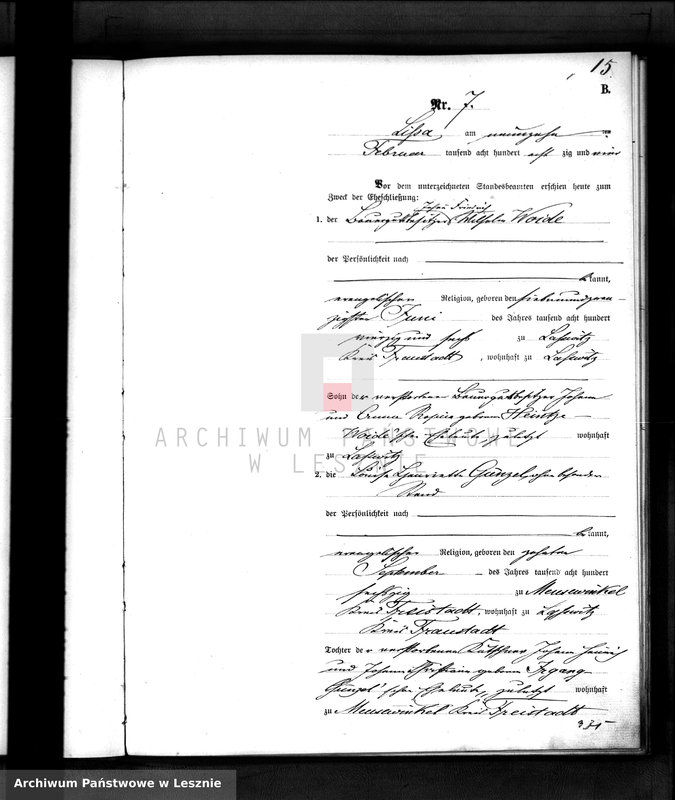 15.
B.
Nr. 7.
Lissa am neunzehn ten
Februar tausend acht hundert acht zig und vier
Vor dem unterzeichneten Standesbeamten erschien heute zum
Zweck der Eheschließung:
Johann Friedrich
1. der Bauergutsbesitzer Wilhelm Woide
der Persönlichkeit nach
kannt,
evangelischer Religion, geboren den siebenundzwan-
zigsten Juni des Jahres tausend acht hundert
vierzig und sechs zu Lasswitz
Kreis Fraustadt, wohnhaft zu Lasswitz
Sohn der verstorbenen Bauergutsbesitzer Johann
und Anna Rosina geborene Heintze
Woide'schen Eheleute zuletzt wohnhaft
zu Lasswitz
2. die Louise Henriette Günzel, ohne besonderen
Stand
der Persönlichkeit nach
kannt,
evangelischer Religion, geboren den zehnten
September des Jahres tausend acht hundert
sechszig zu Meusewinkel
Kreis Freistadt, wohnhaft zu Lasswitz
Kreis Fraustadt
Tochter der verstorbenen Kutschner Johann Heinrich
und Johanne Christiane geborene Irgang
Günzel'schen Eheleute, zuletzt wohnhaft
zu Meusewinkel Kreis Freistadt
ARCHIWUM PAŃSTWOWE
W LESZNIE
Archiwum Państwowe w Lesznie